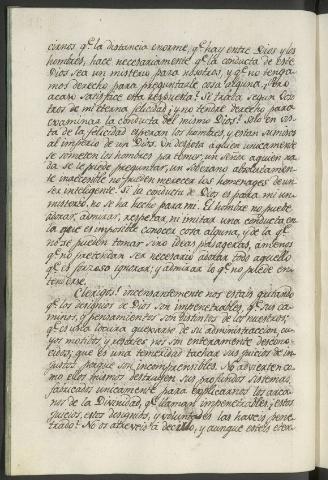 cirnos q.e la distancia enorme, q.e hay entre Dios y los
hombres, hace necesariamente q.e la conducta de este
Dios sea un misterio para nosotros, y q.e no tenga-
mos derecho para preguntarle cosa alguna. ¿Pero
acaso satisface esta respuesta? Se trata segun voso-
tros de mi eterna felicidad; y no tendré derecho para
examinar la conducta del mismo Dios? Solo en vis-
ta de la felicidad esperan los hombres, y estan sumisos
al imperio de un Dios. Un despota à quien unicamente
se someten los hombres por temor, un Señor à quien na-
da se le puede preguntar, un soberano absolutamen-
te inaccesible no pueden merecer los homenages de un
ser inteligente. Si la conducta de Dios es para mi un
misterio, no se ha hecho para mi. El hombre no puede
adorar, admirar, respetar ni imitar una conducta en
la que es imposible conocer cosa alguna, y de la q.e
no se pueden tomar sino ideas pasageras, amenos
q.e no pretendan ser necesario adorar todo aquello
q.e es forzoso ignorar; y admirar lo q.e no puede en-
tenderse.
Clerigos! incesantemente nos estais gritando
q.e los designios de Dios son impenetrables, q.e sus ca-
minos, y pensamientos son distintos de los nuestros;
q.e es una locura quexarse de su administracion, cu-
yos motivos y resortes nos son enteramente descono-
cidos; que es una temeridad tachar sus juicios de in-
justos porque son incomprensibles. No advierten co-
mo ellos mismos destruyen sus profundos sistemas,
fabricados unicamente para explicarnos los arca-
nos de la Divinidad, q.e llaman impenetrables; ¿estos
juicios, estos designios, y voluntades las haveis pene-
trado? No os atreveis à decirlo, y aunque esteis eter-